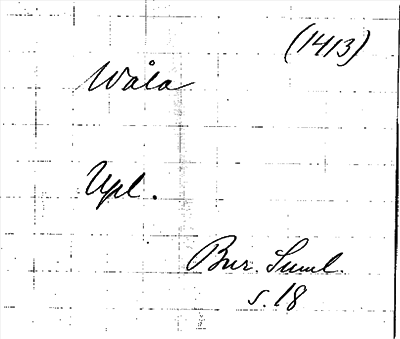 (1413)
Wåla
Upl.
Bur. Suml.
s. 18